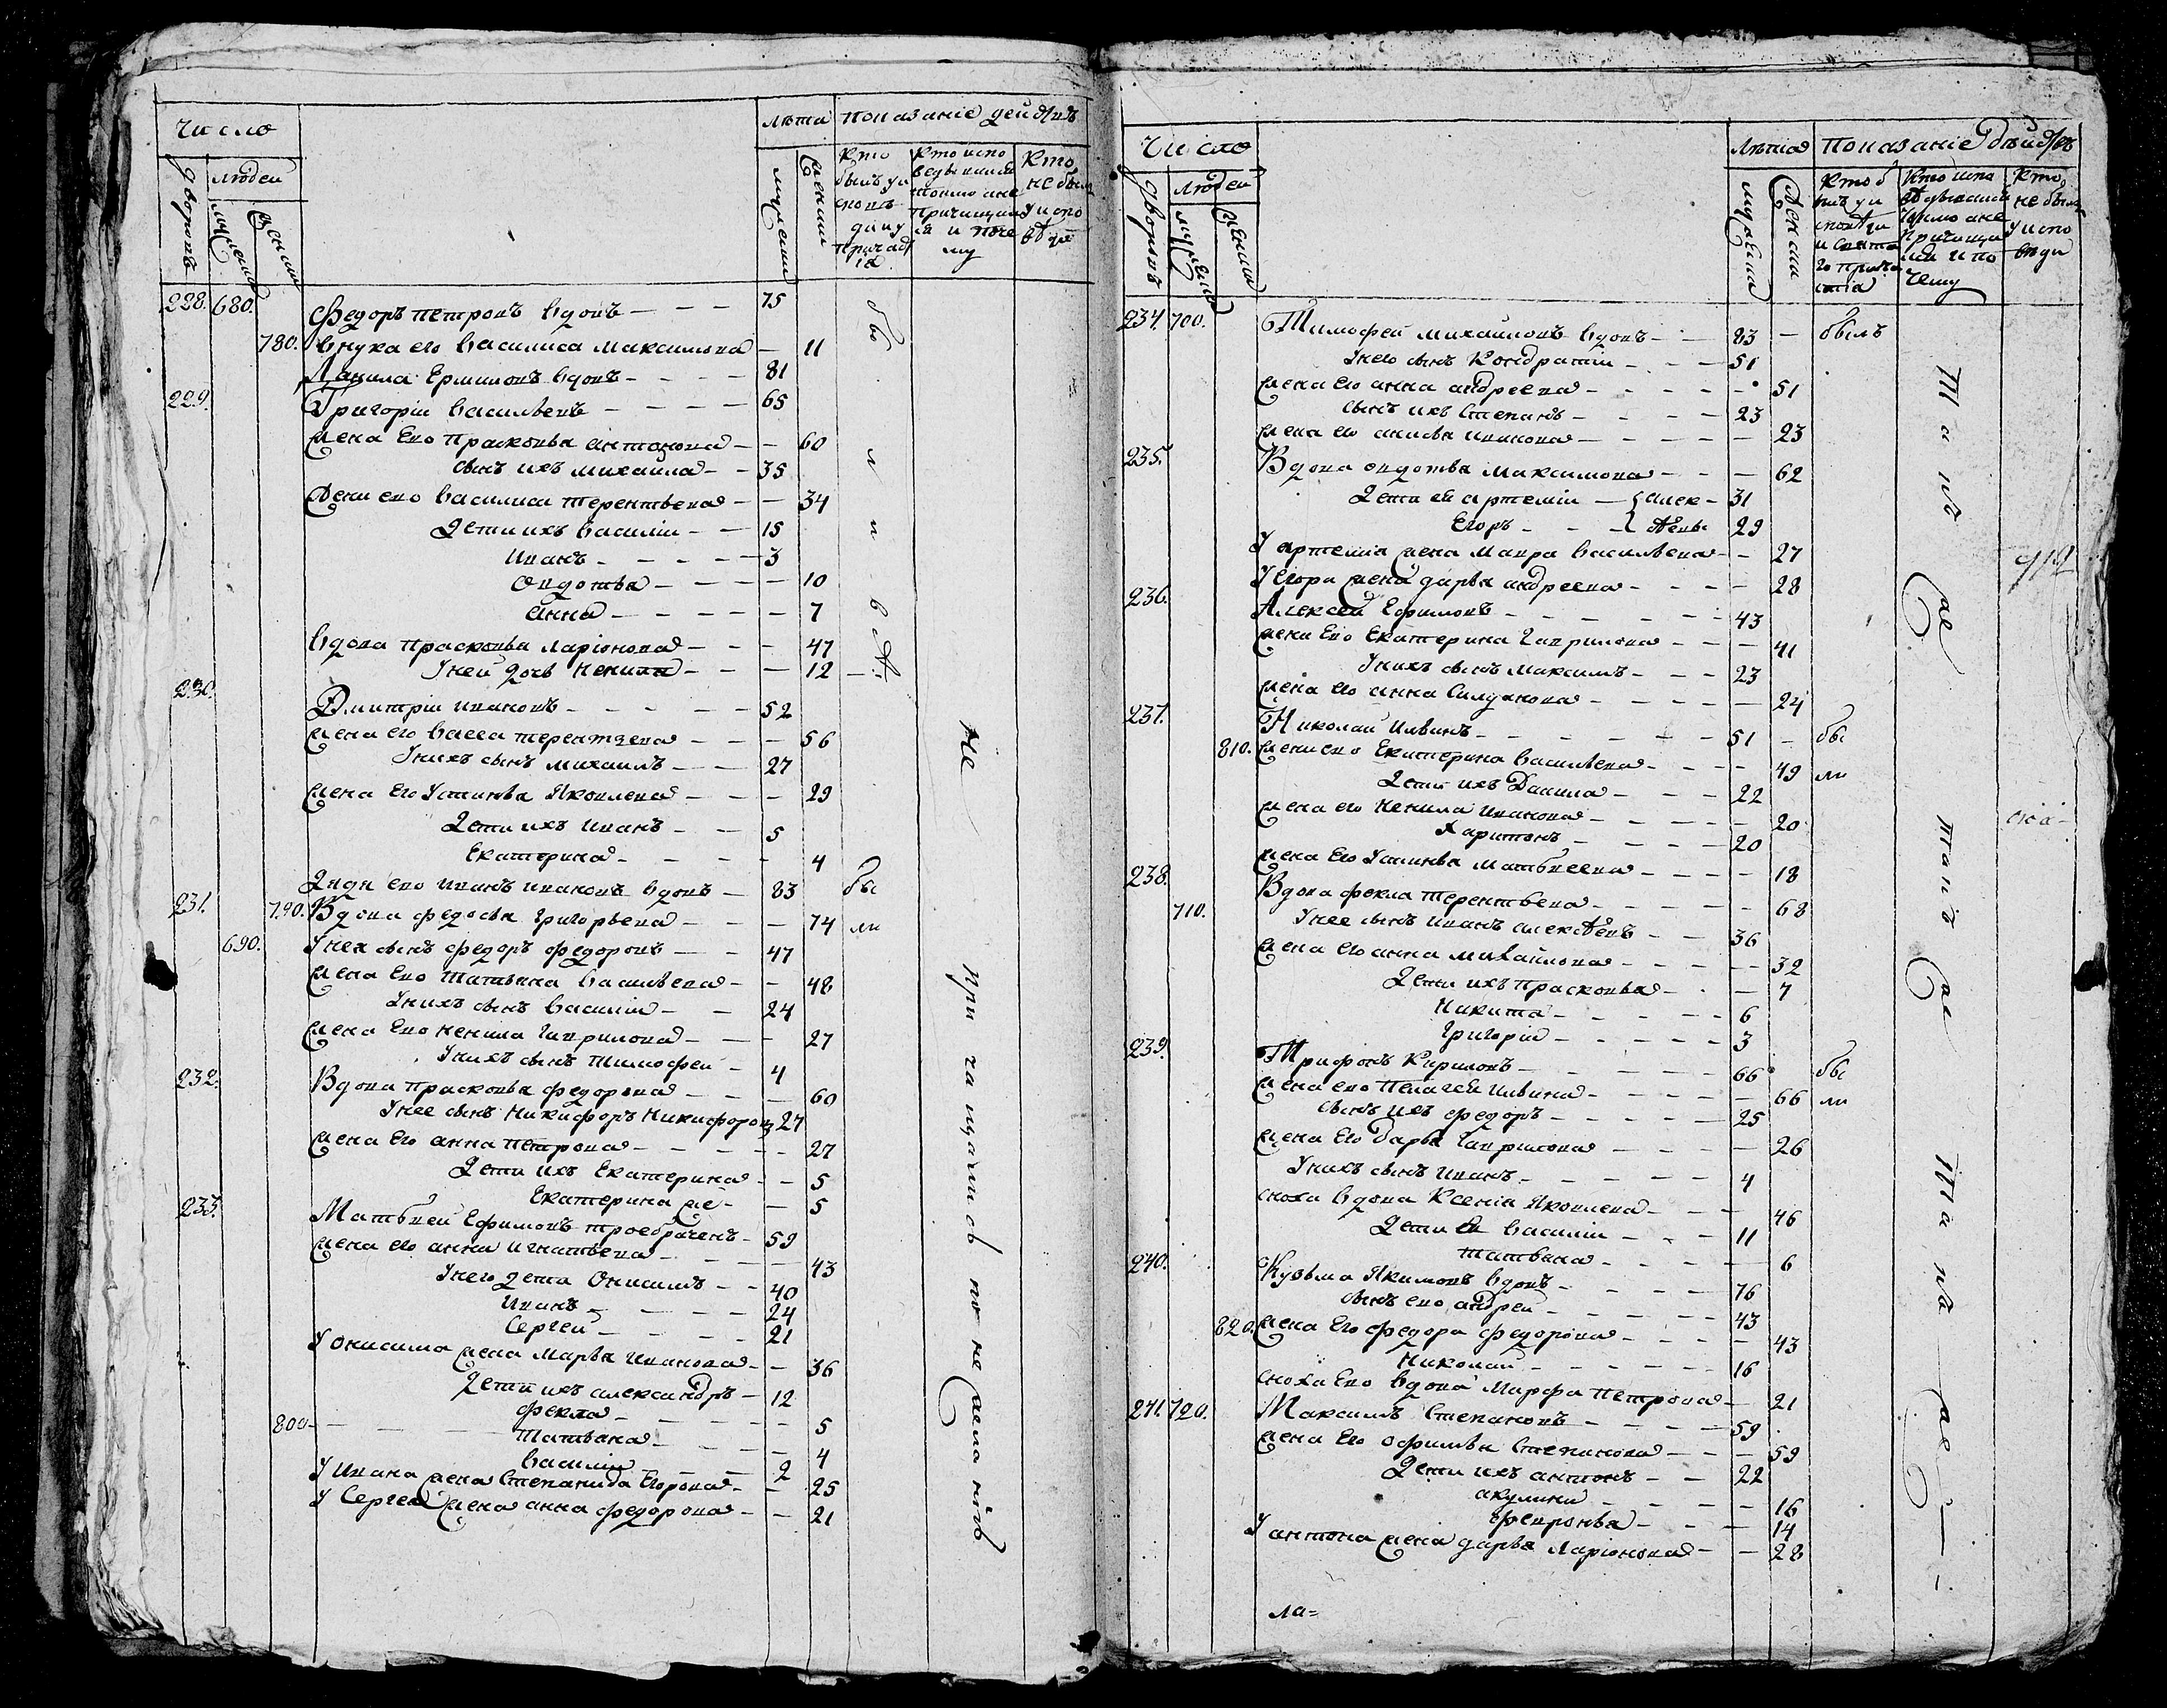 Число
Лѣта
Показанiе дѣйствъ
дворовъ
людей
мужеска
женска
мужески
женски
кто былъ у исповѣди и у причастiя
Кто исповѣдывался токмо а не причащался и почему
Кто не былъ у исповѣди
228. 680. Федоръ Петровъ вдовъ — 75
780. внука его Василиса Максимова — 11
Данила Ермиловъ вдовъ — 81
229. Григорiй Васильевъ — 65
жена ево Прасковья Антонова — 60
сынъ ихъ Михайла — 35
жена ево Василиса Терентьева — 34
Дети ихъ Василiй — 15
Иванъ — 3
Овдотья — 10
Анна — 7
вдова Прасковья Ларiонова — 47
У ней дочь Ненила — 12
230. Дмитрiй Ивановъ — 52
жена его Васса Терентьева — 56
У нихъ сынъ Михаилъ — 27
жена его Устинья Яковлева — 29
Дети ихъ Иванъ — 5
Екатерина — 4
Дядя ево Иванъ Ивановъ вдовъ — 83 бы
231. 790. Вдова Федосья Григорьева — 74 ли
690. У нея сынъ Федоръ Федоровъ — 47
жена ево Татьяна Васильева — 48
У нихъ сынъ Василiй — 24
жена ево Ненила Гаврилова — 27
У нихъ сынъ Тимофей — 4
232. Вдова Прасковья Федорова — 60
У нее сынъ Никифоръ Никифоровъ 27
жена его Анна Петрова — 27
Дети ихъ Екатерина — 5
Екатерина же — 5
233. Матвей Ефимовъ троебраченъ — 59
жена его Анна Игнатьева — 43
У него дети Онисимъ — 40
Иванъ — 24
Сергей — 21
У Онисима жена Марья Иванова — 36
Дети ихъ Александръ — 12
Фекла — 5
800. Татьяна — 4
Василiй — 2
У Ивана жена Степанида Егорова — 25
У Сергея жена Анна Федорова — 21
были в
Не причащались по нежеланiю
Число
Лѣта
Показанiе дѣйствъ
дворовъ
людей
мужеска
женска
мужеска
женска
Кто былъ у исповѣди и святаго причастiя
Кто исповѣдывался токмо а не причащался и почему
Кто не былъ у исповѣди
234. 700. Тимофей Михайловъ вдовъ — 83 — былъ
У него сынъ Кондратiй — 51
жена его Анна Андреева — 51
сынъ ихъ Степанъ — 23
жена его Анисья Иванова — 23
235. Вдова Овдотья Максимова — 62
Дети ея Артемiй — Алек — 31
Егоръ — сѣевы 29
У Артемiя жена Мавра Васильева — 27
У Егора жена Дарья Андреева — 28
236. Алексей Ефимовъ — 43
жена ево Екатерина Гаврилова — 41
У нихъ сынъ Максимъ — 23
жена его Анна Силуянова — 24
237. Николай Ильинъ — 51 — бы
810. жена ево Екатерина Васильева — 49 ли
Дети ихъ Данила — 22
жена его Ненила Иванова — 20
Харитонъ — 20
жена его Устинья Матвеева — 18
238. Вдова Фекла Терентьева — 68
710. У нее сынъ Иванъ Алексѣевъ — 36
жена его Анна Михайлова — 32
Дети ихъ Прасковья — 7
Никита — 6
Григорiй — 3
239. Трифонъ Кириловъ — 66 бы
жена ево Пелагея Ильина — 66 ли
сынъ ихъ Федоръ — 25
жена его Дарья Гаврилова — 26
У нихъ сынъ Иванъ — 4
сноха вдова Ксенiя Яковлева — 46
Дети ея Василiй — 11
Татьяна — 6
240. Кузьма Якимовъ вдовъ — 76
сынъ ево Андрей — 43
820. жена его Федора Федорова — 43
Николай — 16
сноха ево вдова Марфа Петрова — 21
241. 720. Максимъ Степановъ — 59
жена его Офимья Степанова — 59
Дети ихъ Антонъ — 22
Акулина — 16
Февронья — 14
У Антона жена Дарья Ларiонова — 28
Такъ же
Такъ же
Та къ же
ла=